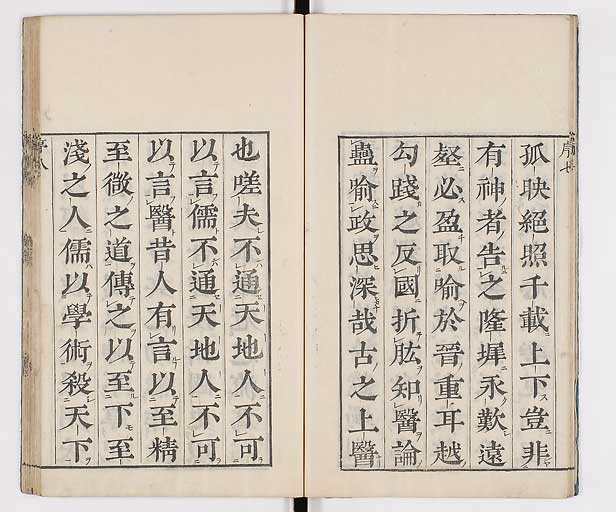 孤映絕照千載上下豈非
有神者告之隆墀永歎遠
壑必盈取喻於晉重耳越
勾踐之反國折肱知醫論
蠱喻政思深哉古之上醫
序七
也嗟夫不通天地人不可
以言儒不通天地人不可
以言醫昔人有言以至精
至微之道傳之以至下至
淺之人儒以學術殺天下
序八